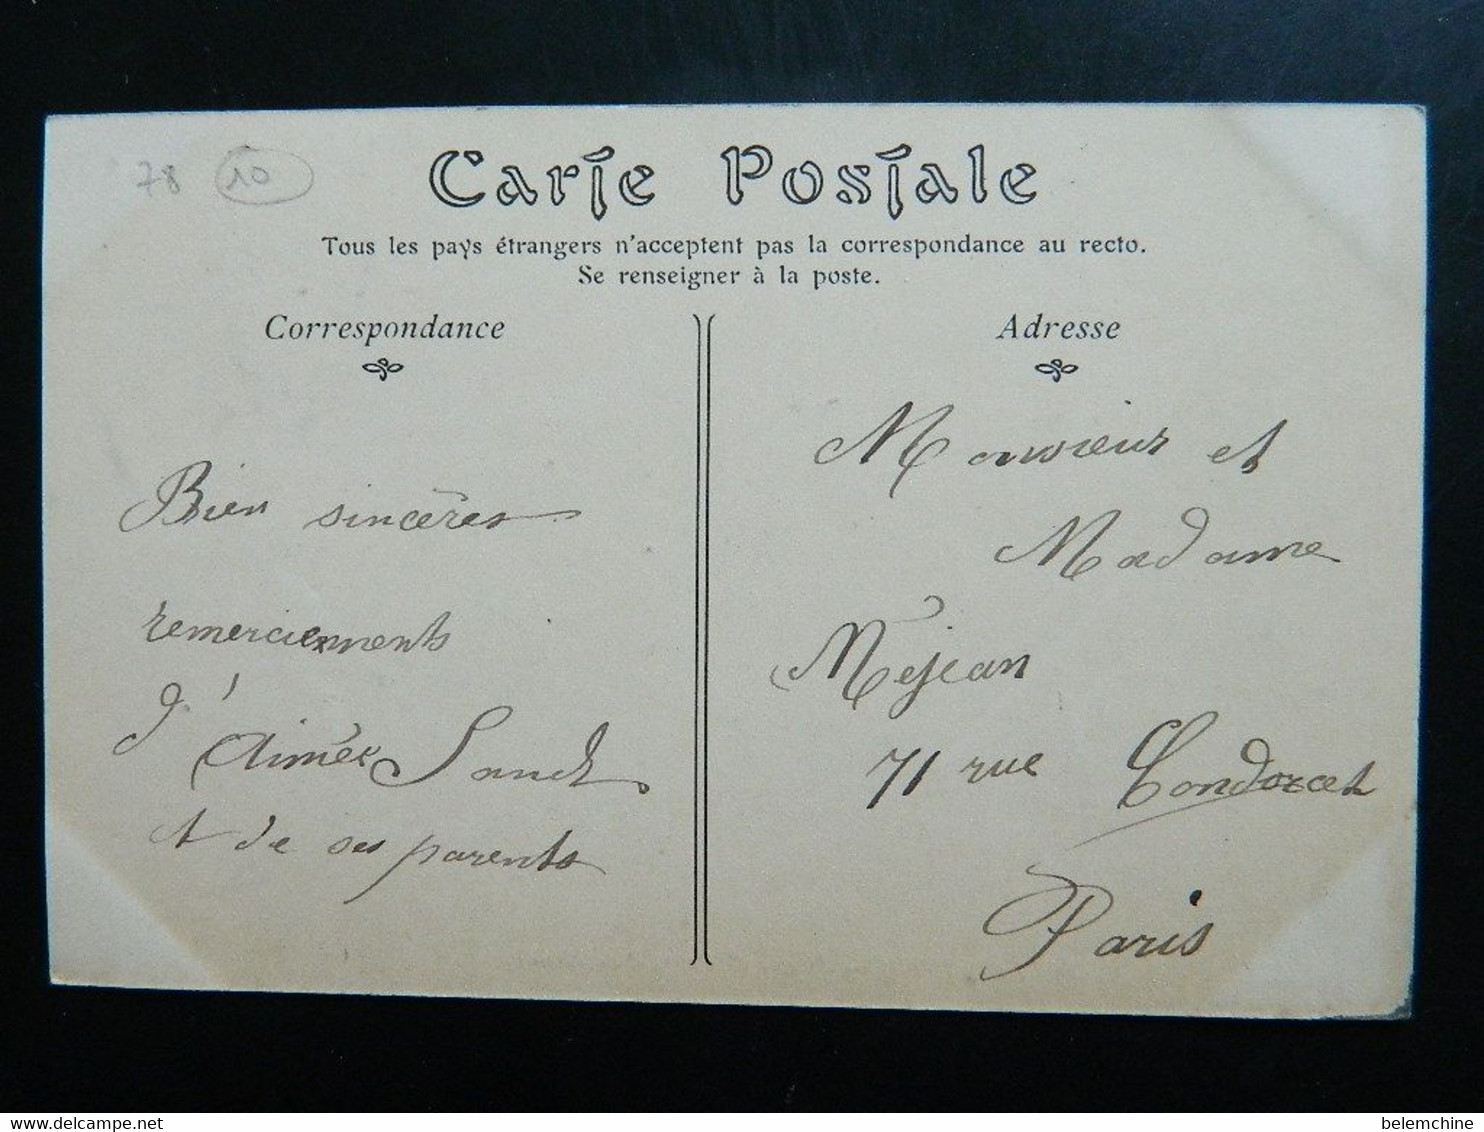 78 10
Carte Postale
Tous les pays étrangers n'acceptent pas la correspondance au recto.
Se renseigner à la poste.
Correspondance
Bien sincères
remerciements
d'
Aimée
et de ses parents
Adresse
Monsieur et
Madame
Méjean
71 rue Condorcet
Paris
delcampe.net
belemchine